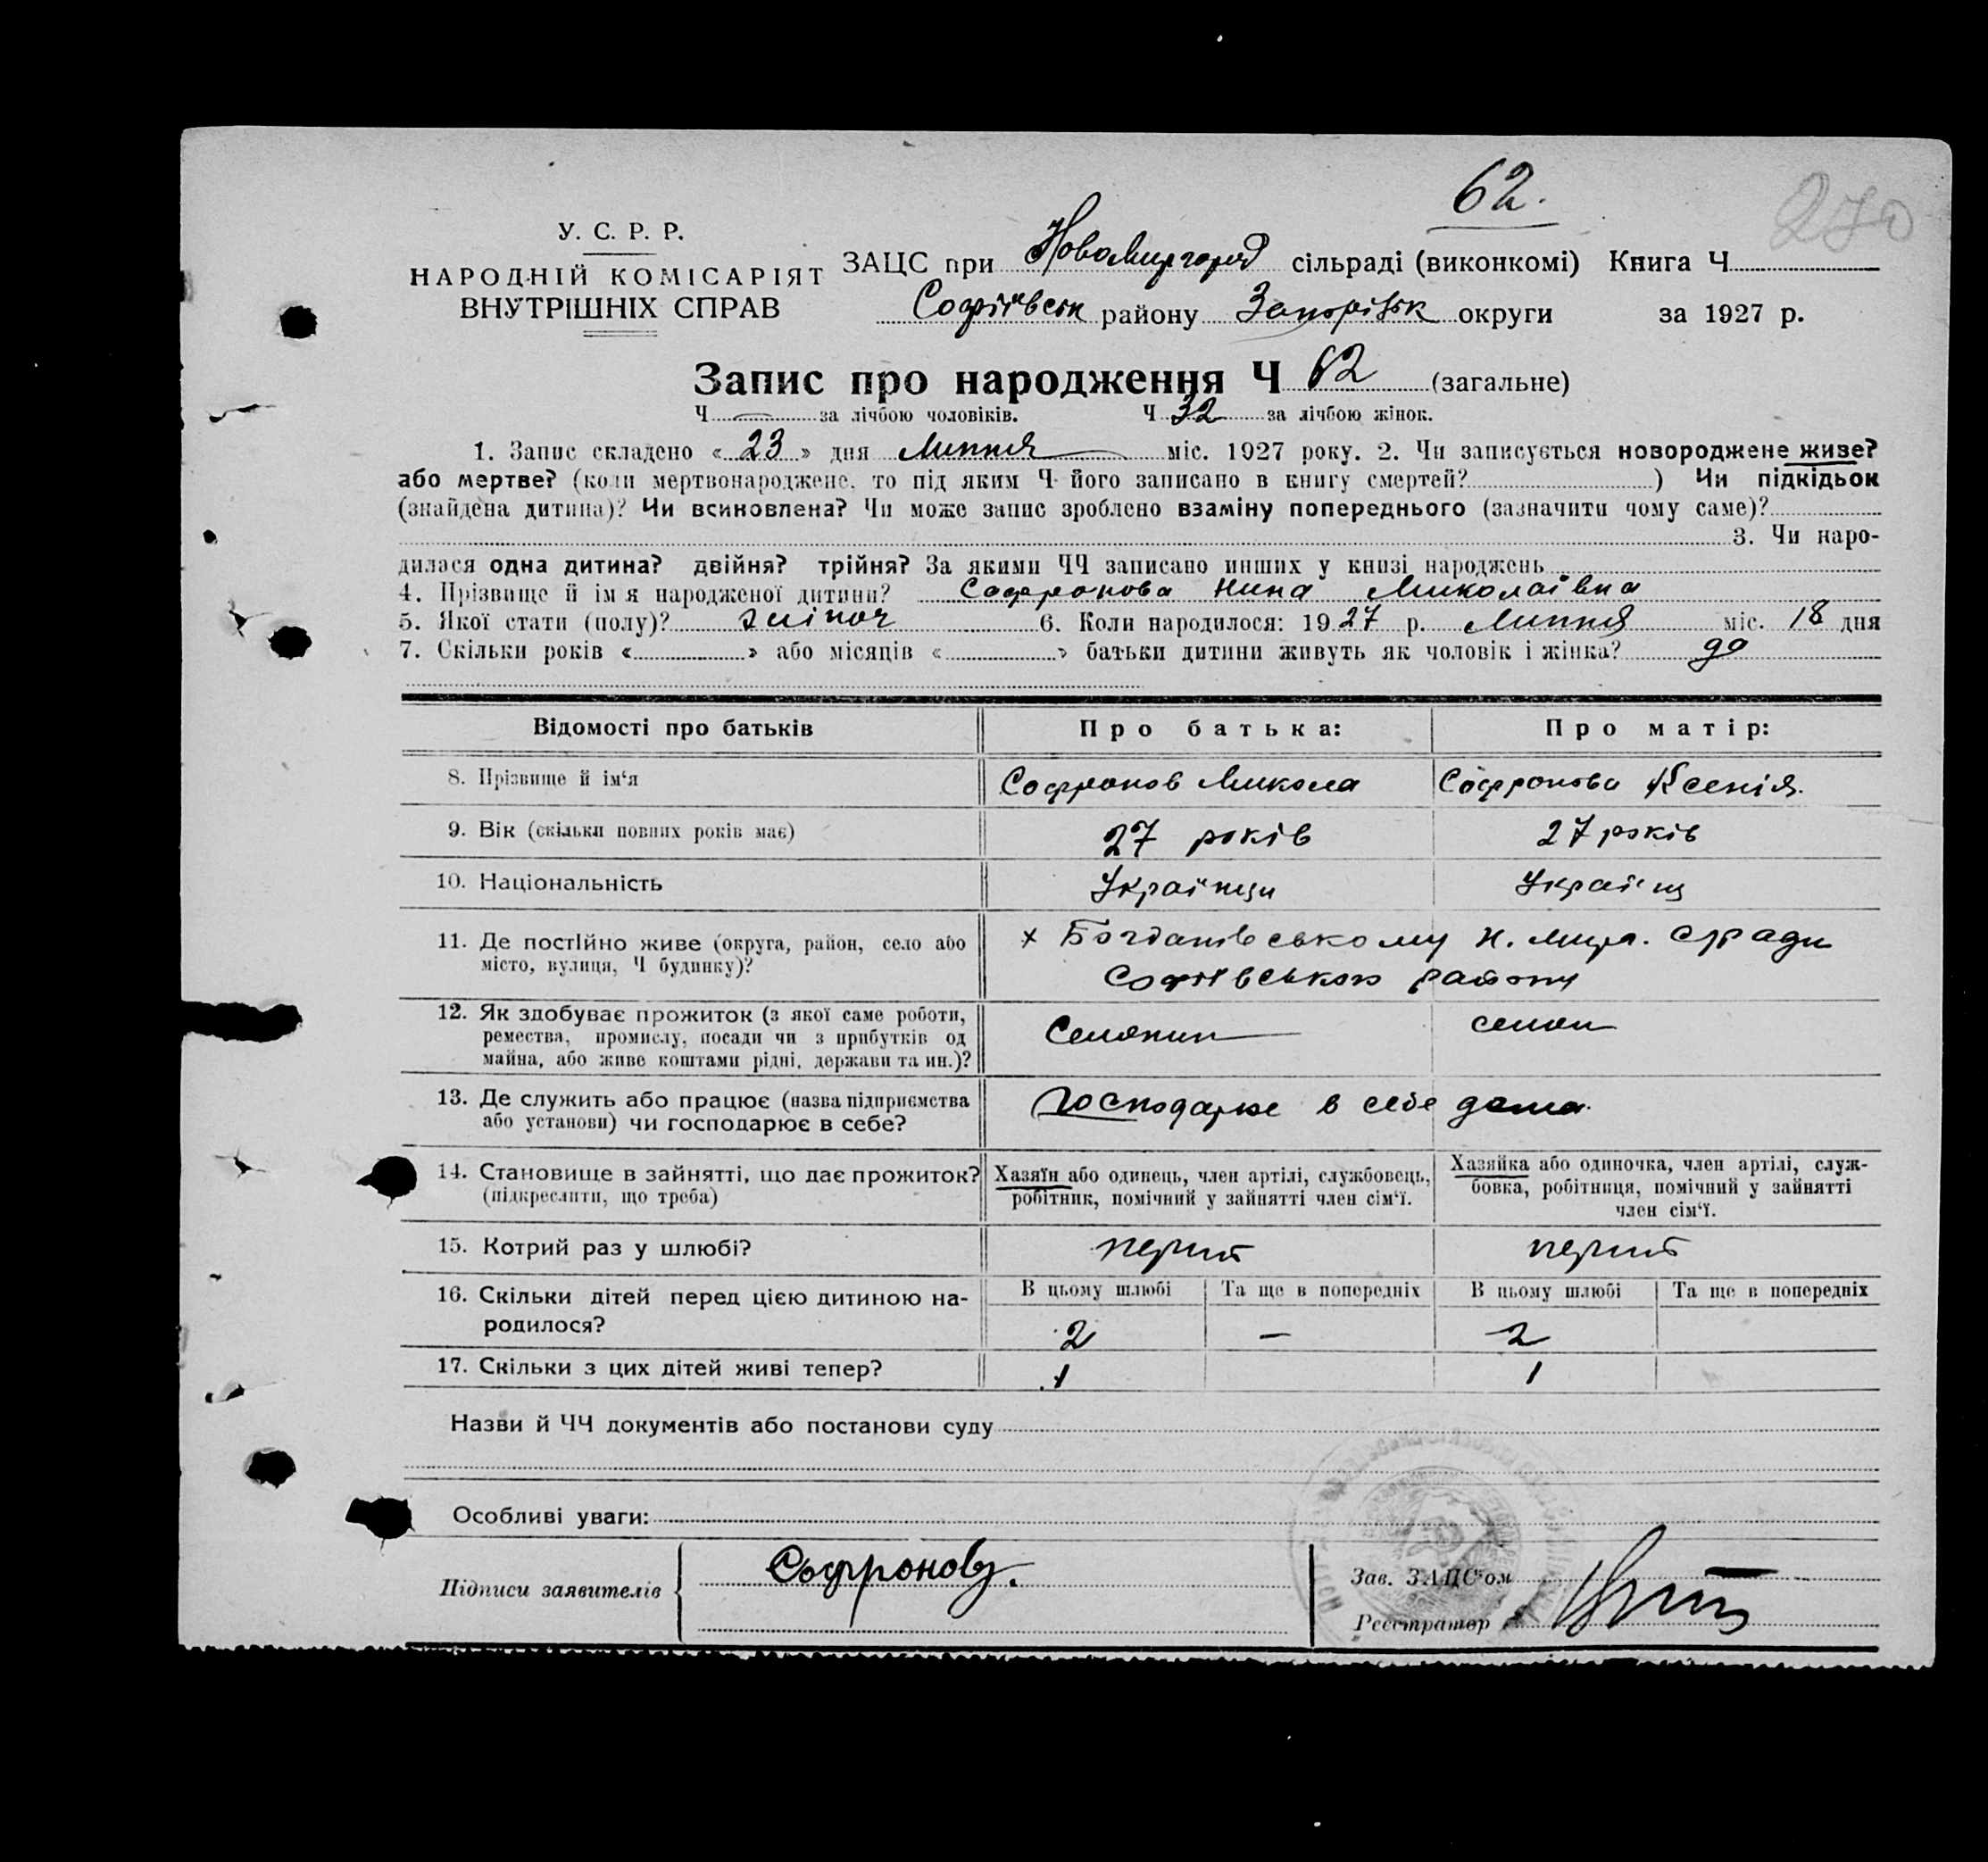 62.
270
У. С. Р. Р.
НАРОДНІЙ КОМІСАРІЯТ
ВНУТРІШНІХ СПРАВ
ЗАЦС при Новомиргород сільраді (виконкомі) Книга Ч
Софіївськ району Запоріжськ округи за 1927 р.
Запис про народження Ч 62 (загальне)
Ч — за лічбою чоловіків. Ч 32 за лічбою жінок.
1. Запис складено «23» дня Липня міс. 1927 року. 2. Чи записується новороджене живе?
або мертве? (коли мертвонароджене, то під яким Ч його записано в книгу смертей? ) Чи підкідьок
(знайдена дитина)? Чи всиновлена? Чи може запис зроблено взаміну попереднього (зазначити чому саме)?
3. Чи наро-
дилася одна дитина? двійня? трійня? За якими ЧЧ записано инших у книзі народжень
4. Прізвище й ім я народженої дитини? Софронова Нина Миколаївна
5. Якої стати (полу)? жіноч 6. Коли народилося: 1927 р. Липня міс. 18 дня
7. Скільки років « » або місяців « » батьки дитини живуть як чоловік і жінка? до
Відомості про батьків Про батька: Про матір:
8. Прізвище й ім‘я Софронов Микола Софронова Ксенія.
9. Вік (скільки повних років має) 27 років 27 років
10. Національність Українци Україц
11. Де постійно живе (округа, район, село або
місто, вулиця, Ч будинку)?
х Богданівському Н. Мирг. с/ради
Софіївського району
12. Як здобуває прожиток (з якої саме роботи,
ремества, промислу, посади чи з прибутків од
майна, або живе коштами рідні, держави та ин.)?
Селянин селян
13. Де служить або працює (назва підприємства
або установи) чи господарює в себе?
Господарює в себе дома.
14. Становище в зайнятті, що дає прожиток?
(підкреслити, що треба)
Хазяїн або одинець, член артілі, службовець,
робітник, помічний у зайнятті член сім‘ї.
Хазяйка або одиночка, член артілі, служ-
бовка, робітниця, помічний у зайнятті
член сім‘ї.
15. Котрий раз у шлюбі? перший перший
16. Скільки дітей перед цією дитиною на-
родилося?
В цьому шлюбі Та ще в попередніх В цьому шлюбі Та ще в попередніх
2 — 2
17. Скільки з цих дітей живі тепер? 1 1
Назви й ЧЧ документів або постанови суду
Особливі уваги:
Підписи заявителів Софронов.
Зав. ЗАЦС‘ом
Реєстратор